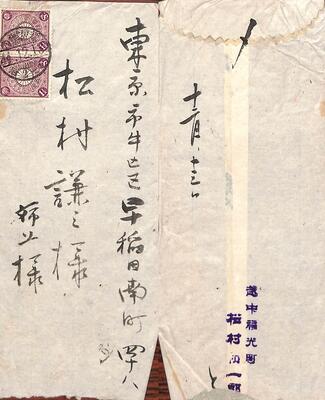 東京市牛込区早稲田南町四十八
松村謙三様
十二月十三日
越中福光町
松村和一郎